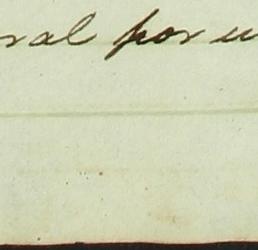 ral por u